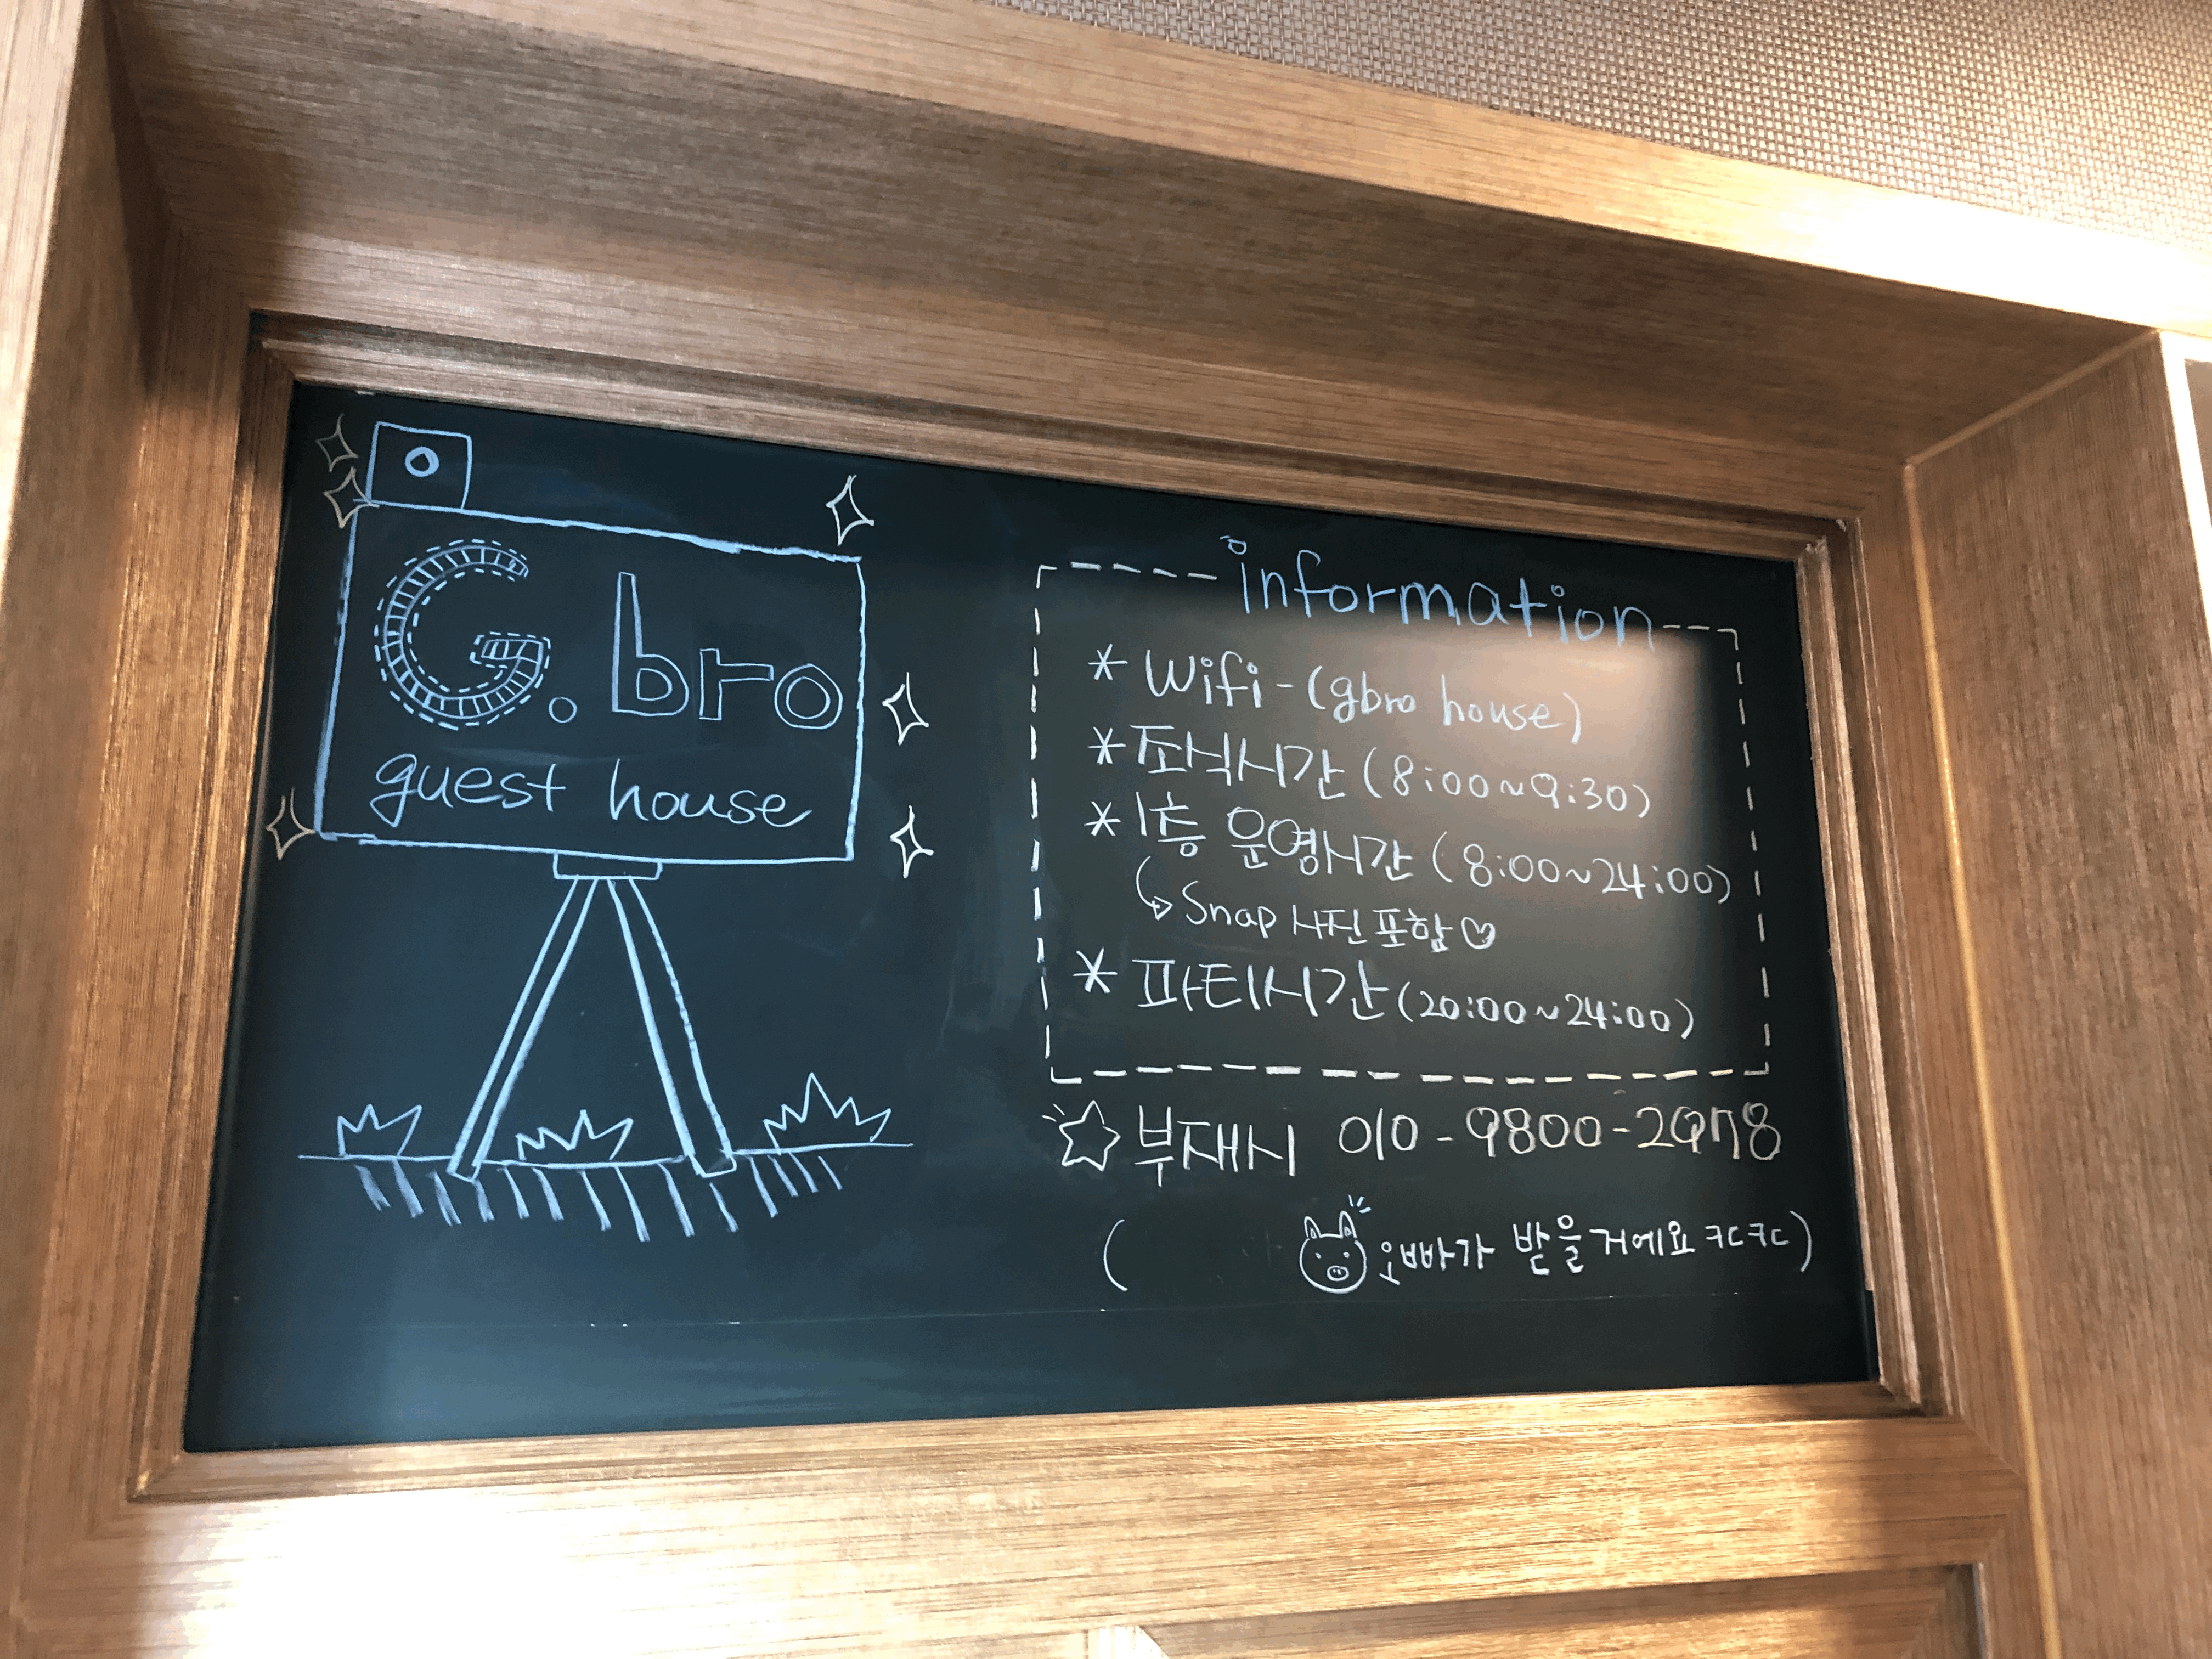 G.bro
guest house
information
* Wifi - (gbro house)
* 조식시간 (8:00~9:30)
* 1층 운영시간 (8:00~24:00)
↳ Snap 사진 포함 ♡
* 파티시간 (20:00~24:00)
☆ 부재시 010-9800-2978
( 오빠가 받을거에요 ㅋㄷㅋㄷ)